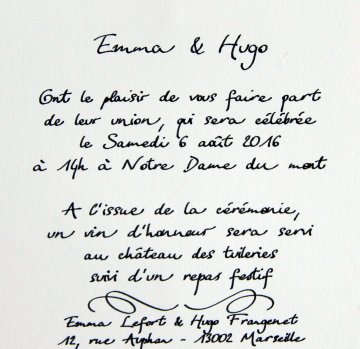 Emma & Hugo
Ont le plaisir de vous faire part
de leur union, qui sera célébrée
le Samedi 6 août 2016
à 14h à Notre Dame du mont
A l'issue de la cérémonie,
un vin d'honneur sera servi
au château des tuileries
suivi d'un repas festif
Emma Lefort & Hugo Frangenet
12, rue - 13002 Marseille